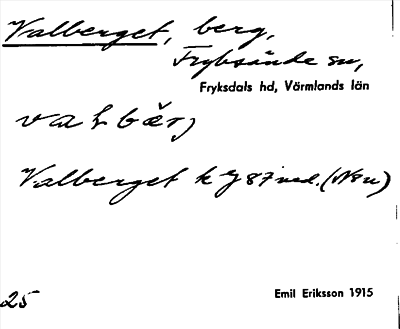 Valberget, berg,
Fryksände sn,
Fryksdals hd, Värmlands län
Valberget k
25
Emil Eriksson 1915